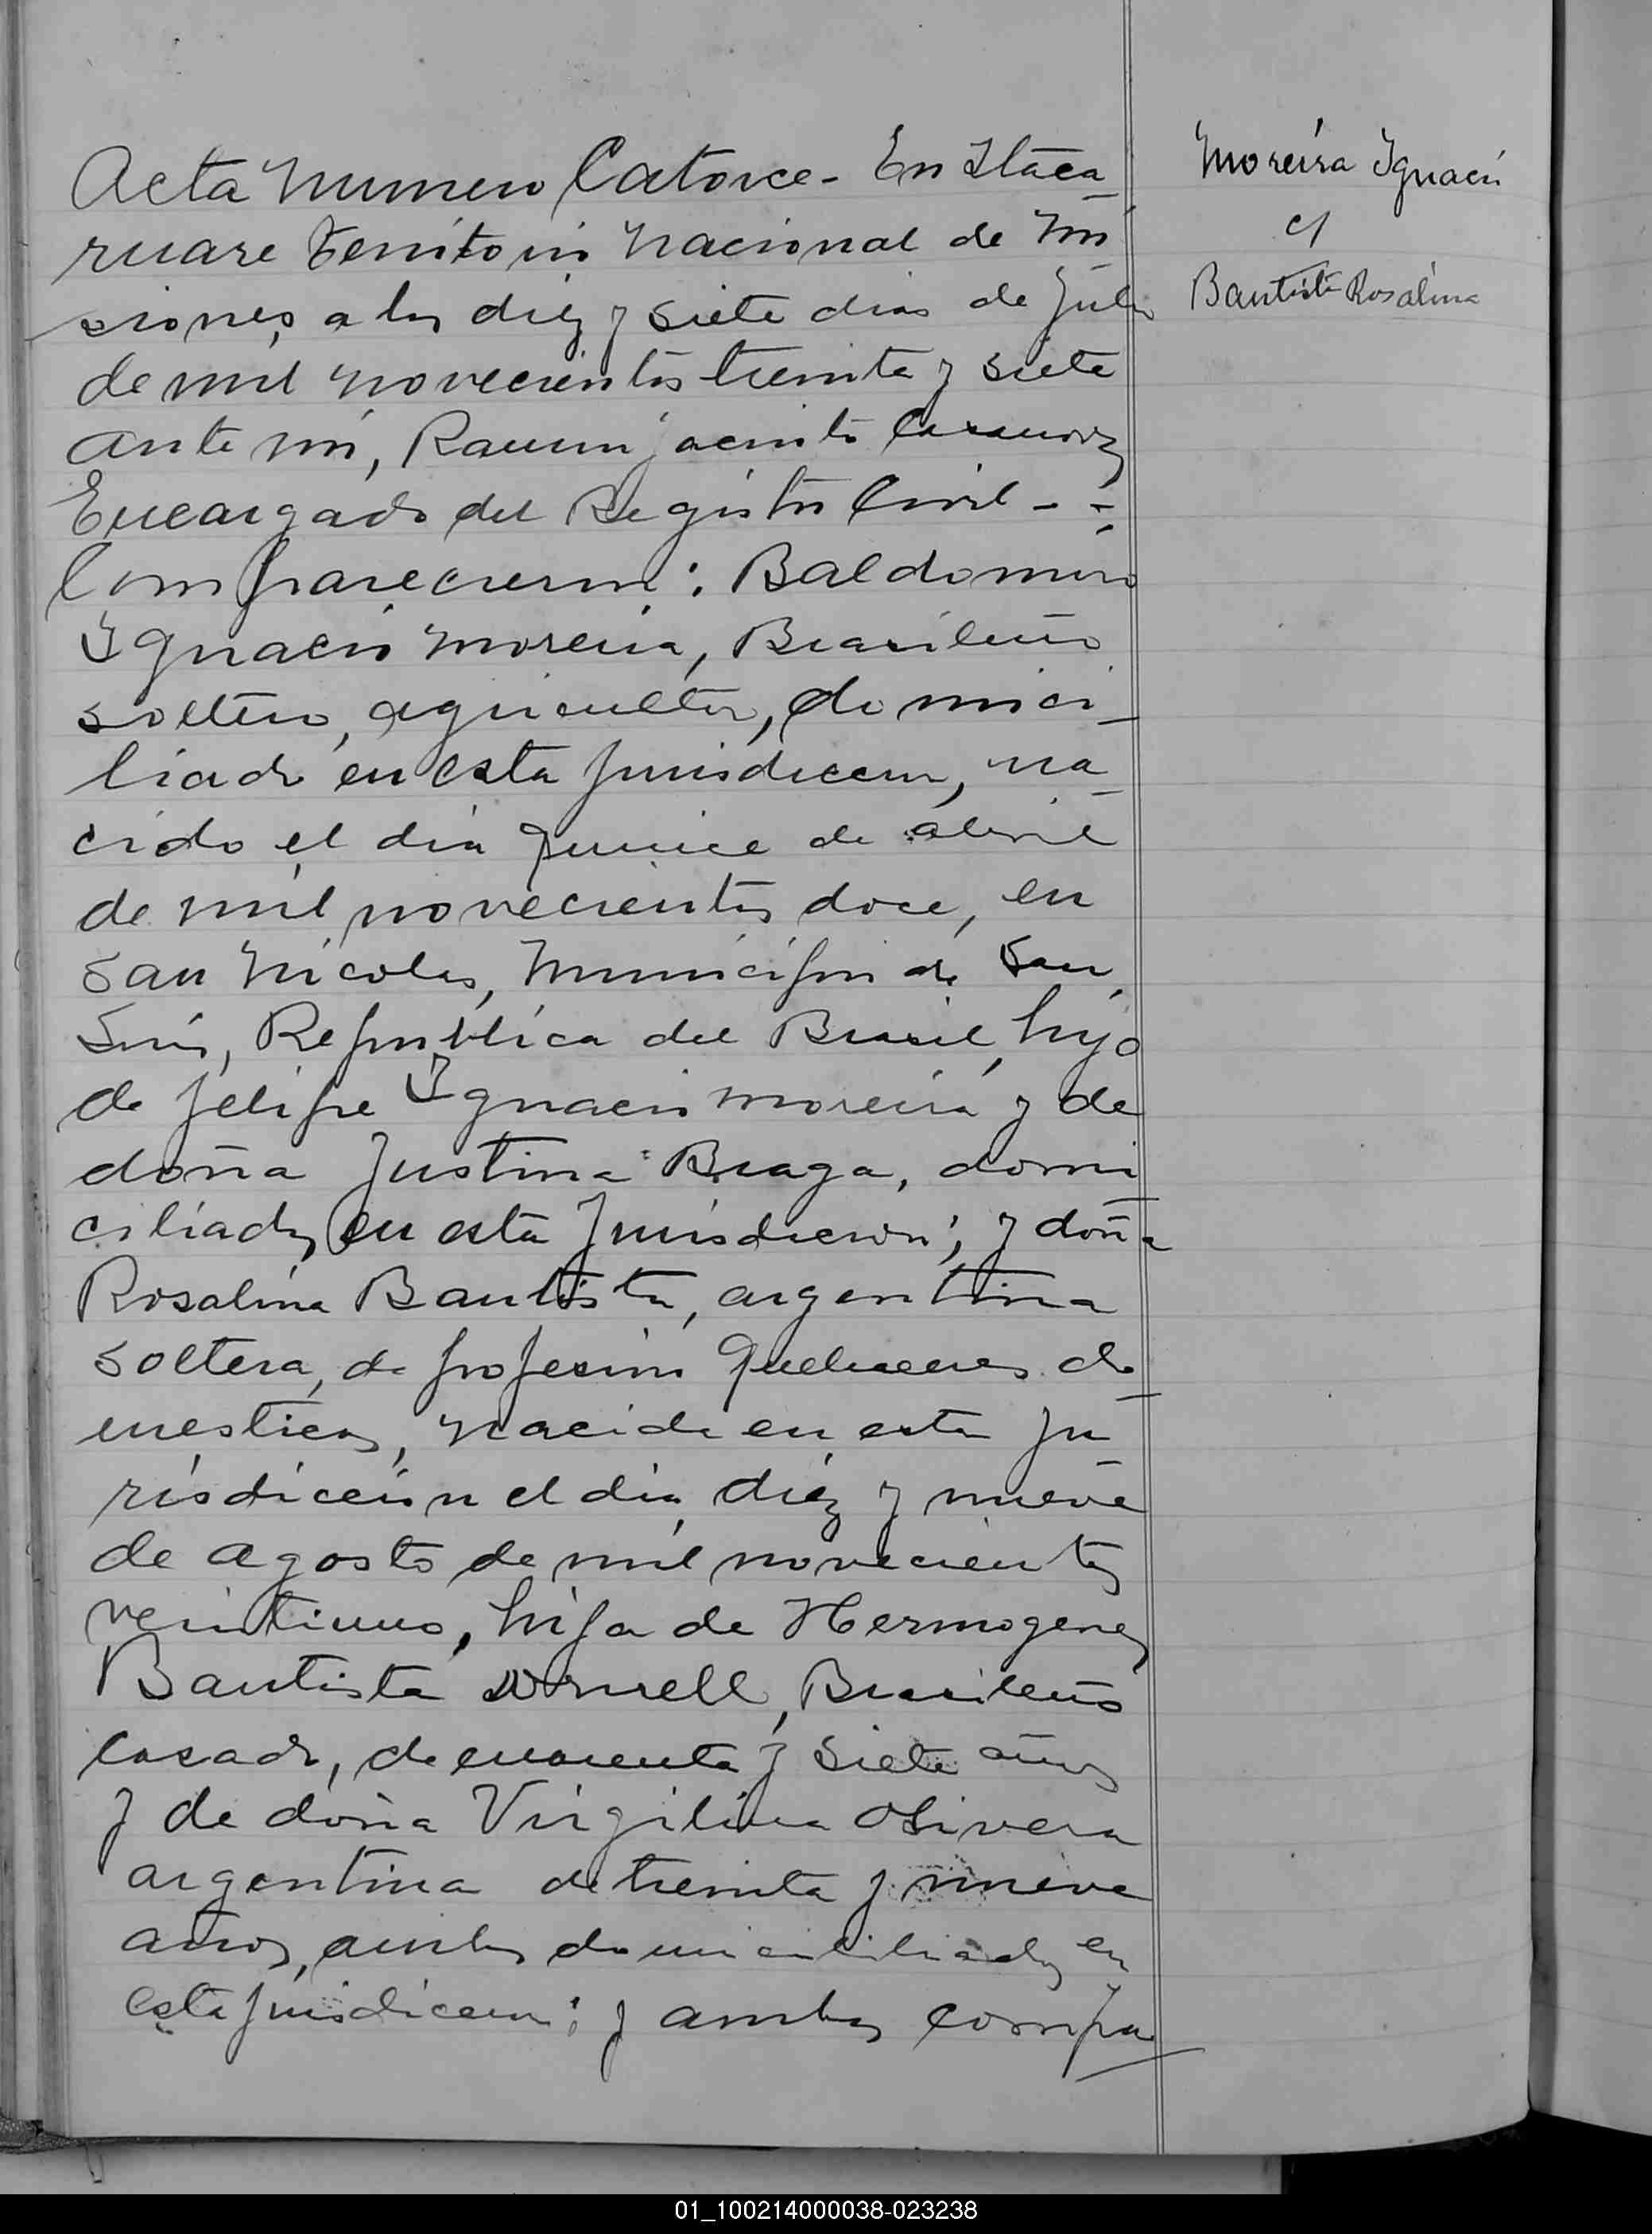 Acta Numero Catorce - En Itaca
ruare Territorio Nacional de Mi
siones, a los diez y siete dias de Julio
de mil novecientos treinta y siete
ante mi, Ramon Jacinto
Encargado del Registro Civil - -
Comparecieron: Baldomero
Ignacio Moreira, Brasileño
soltero, agricultor, domici-
liado en esta Jurisdiccion, na
cido el dia quince de abril
de mil novecientos doce, en
San Nicolas, Municipio de San
Luis, Republica del Brasil, hijo
de Felipe Ignacio Moreira y de
doña Justina Braga, domi
ciliados en esta Jurisdiccion; y doña
Rosalina Bautista, argentina
soltera, de profesion quehaceres do
mesticos, nacida en esta Ju
risdiccion el dia diez y nueve
de agosto de mil novecientos
veintiuno, hija de Hermogenes
Bautista Dornell, Brasileño
casado, de cuarenta y siete años
y de doña Virgilina Olivera
argentina de treinta y nueve
años, ambos domiciliados en
esta Jurisdiccion; y ambos compa
Moreira Ignacio
c/
Bautista Rosalina
01_100214000038-023238